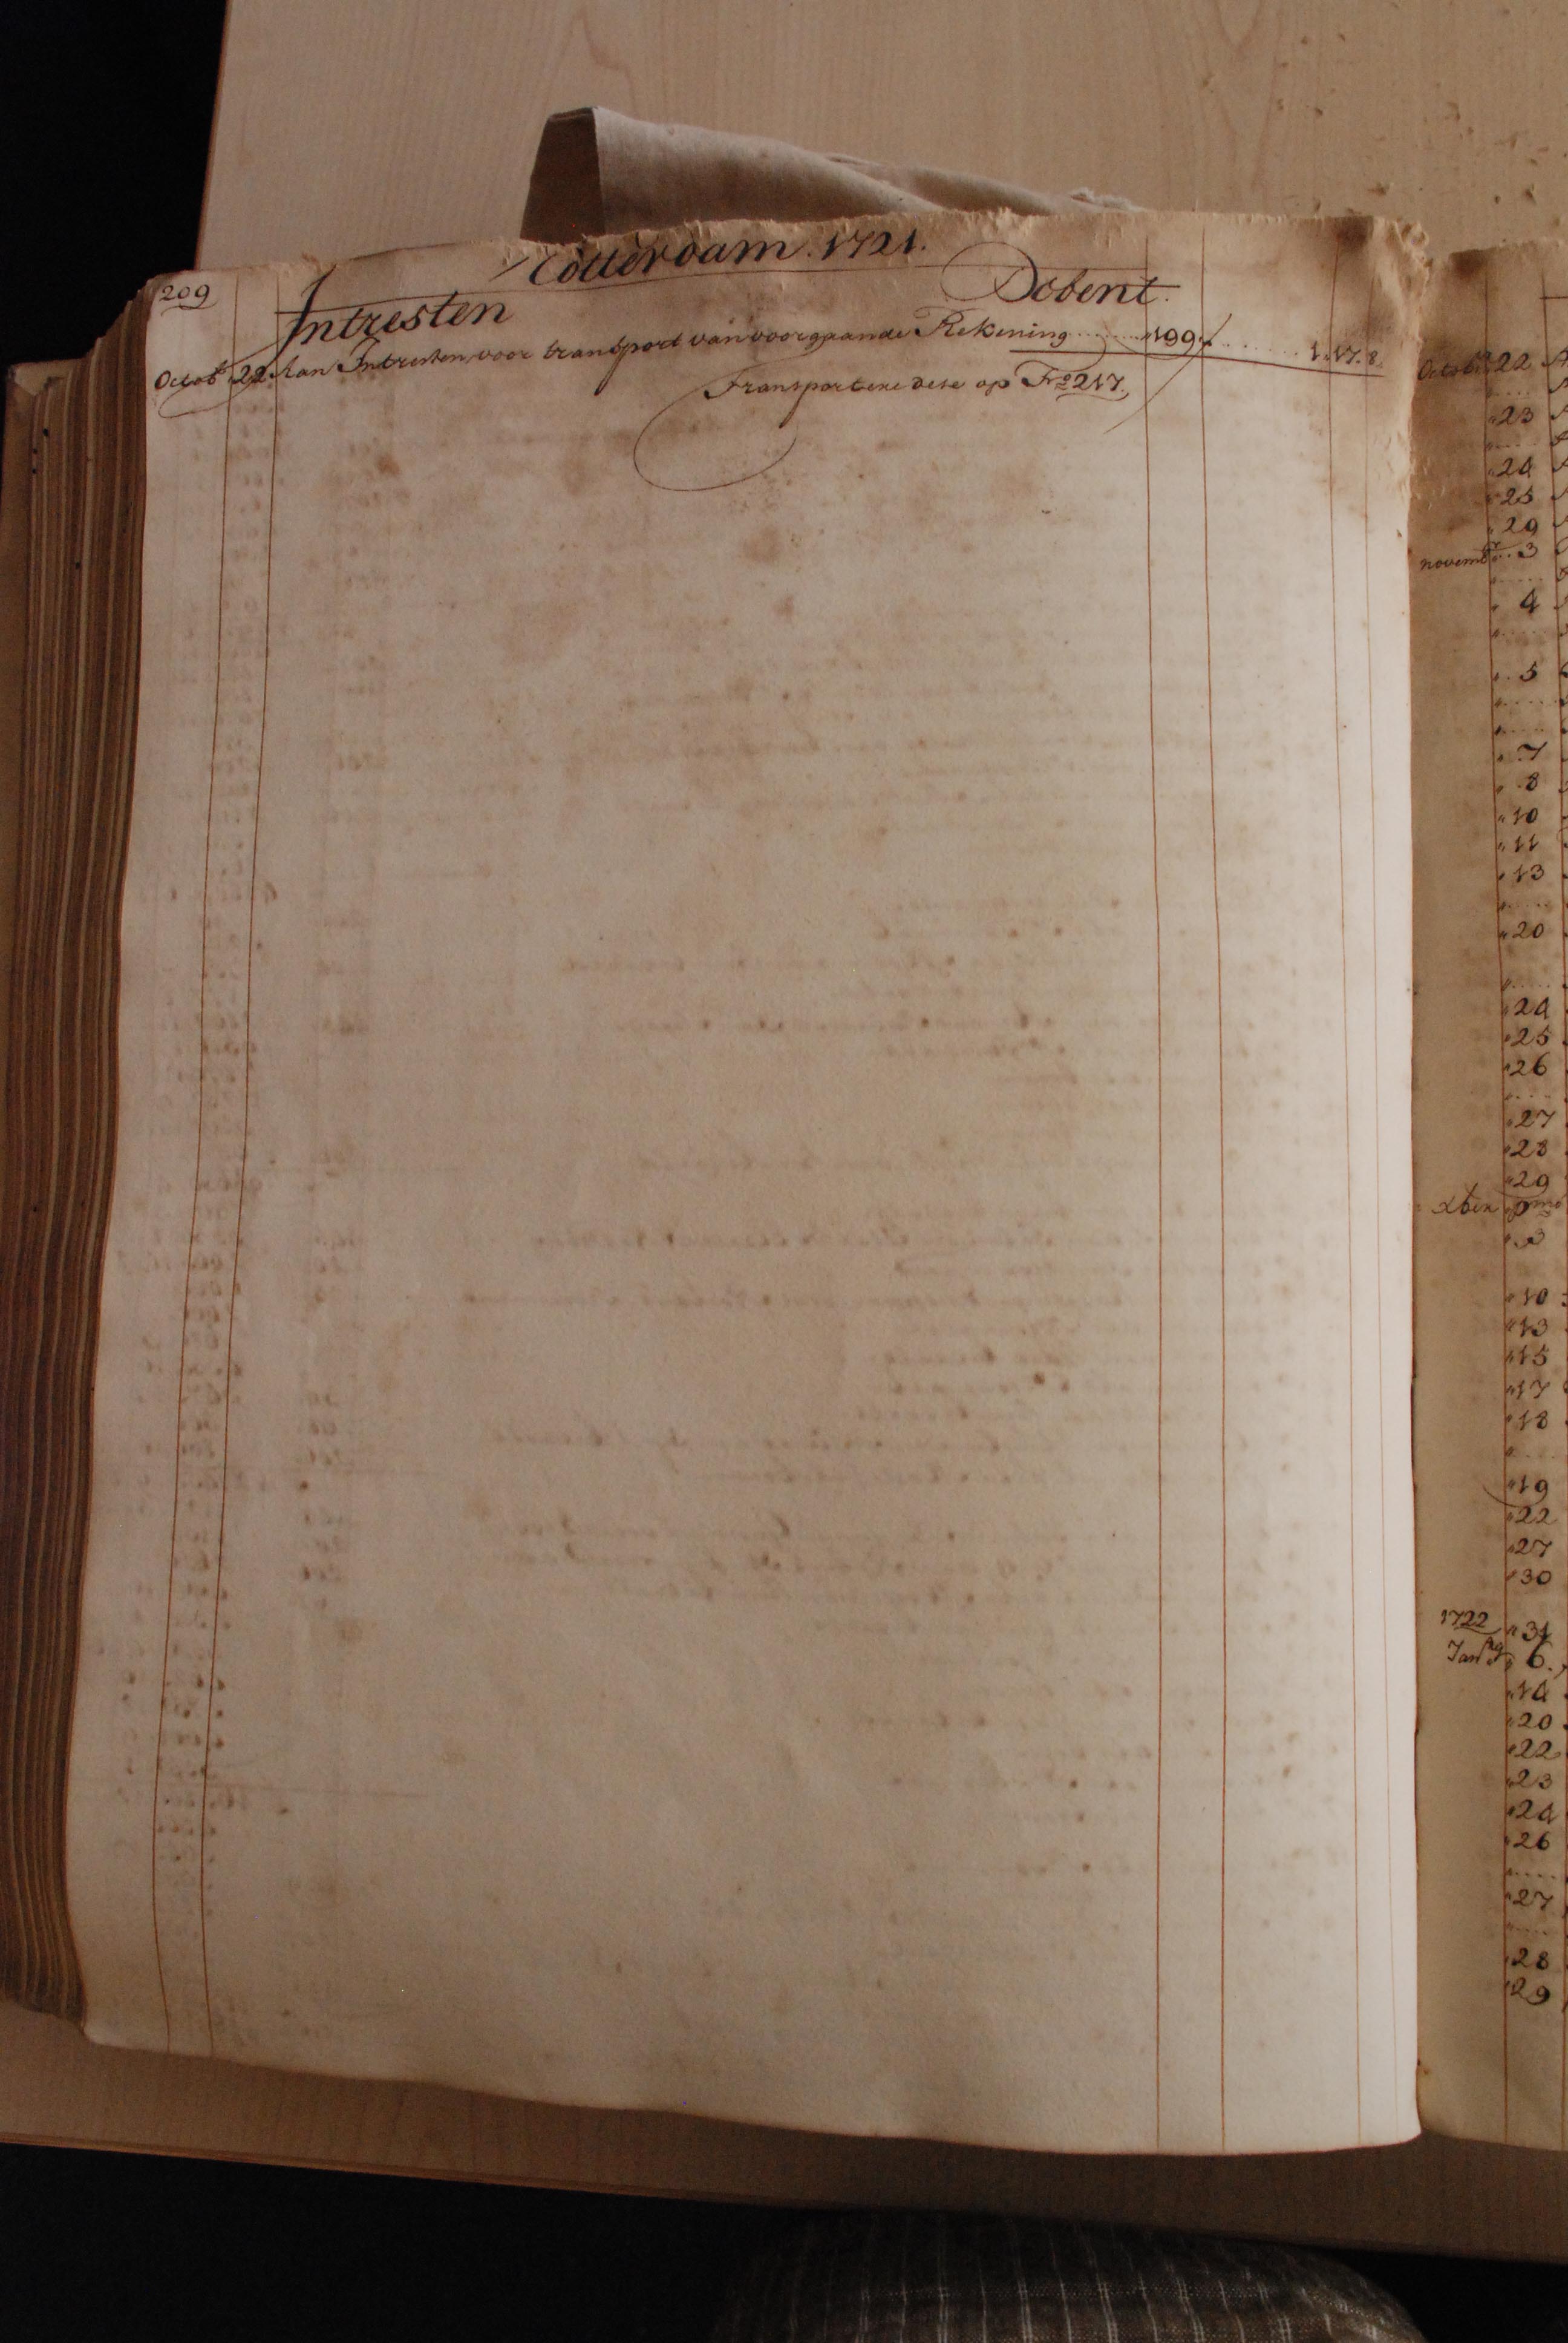 Rotterdam. 1721.
209
Intresten Debent.
Octobr 22 Aan Intresten, voor transport van voorgaande Rekening ........ 199 f ........ 1.17.8.
Transportere dese op Fo 217.
Octobr 22
23
24
25
29
novembr 3
4
5
7
8
10
11
13
20
24
25
26
27
28
29
xber pmo
3
10
13
15
17
18
19
22
27
30
1722 31
Janry 6.
14
20
22
23
24
26
27
28
29